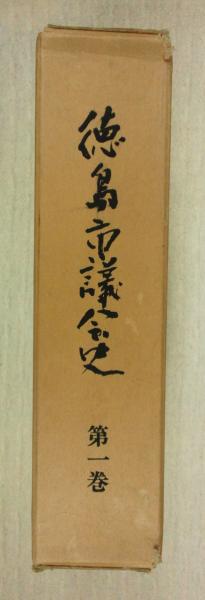 徳島市議会史
第一巻